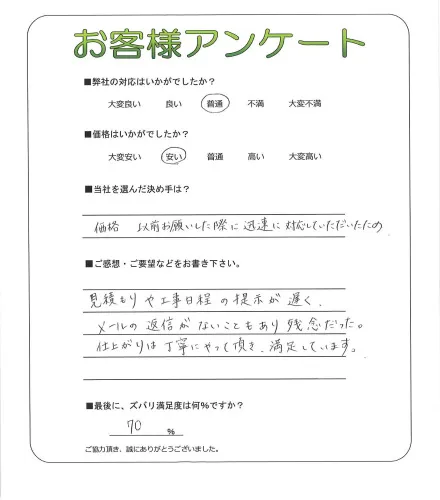 お客様アンケート
■弊社の対応はいかがでしたか?
大変良い 良い 普通 不満 大変不満
■価格はいかがでしたか?
大変安い 安い 普通 高い 大変高い
■当社を選んだ決め手は?
価格 以前お願いした際に迅速に対応していただいたの
■ご感想・ご要望などをお書き下さい。
見積もりや工事日程の提示が遅く、
メールの返信がないこともあり残念だった。
仕上がりは丁寧にやって頂き、満足しています。
■最後に、ズバリ満足度は何%ですか?
70 %
ご協力頂き、誠にありがとうございました。